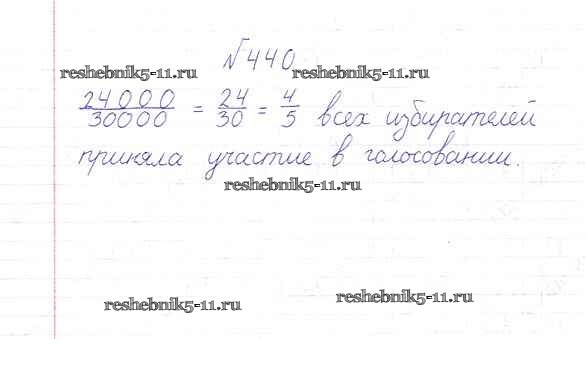 №440
reshebnik5-11.ru reshebnik5-11.ru
24000/30000 = 24/30 = 4/5 всех избирателей
приняла участие в голосовании.
reshebnik5-11.ru
reshebnik5-11.ru reshebnik5-11.ru